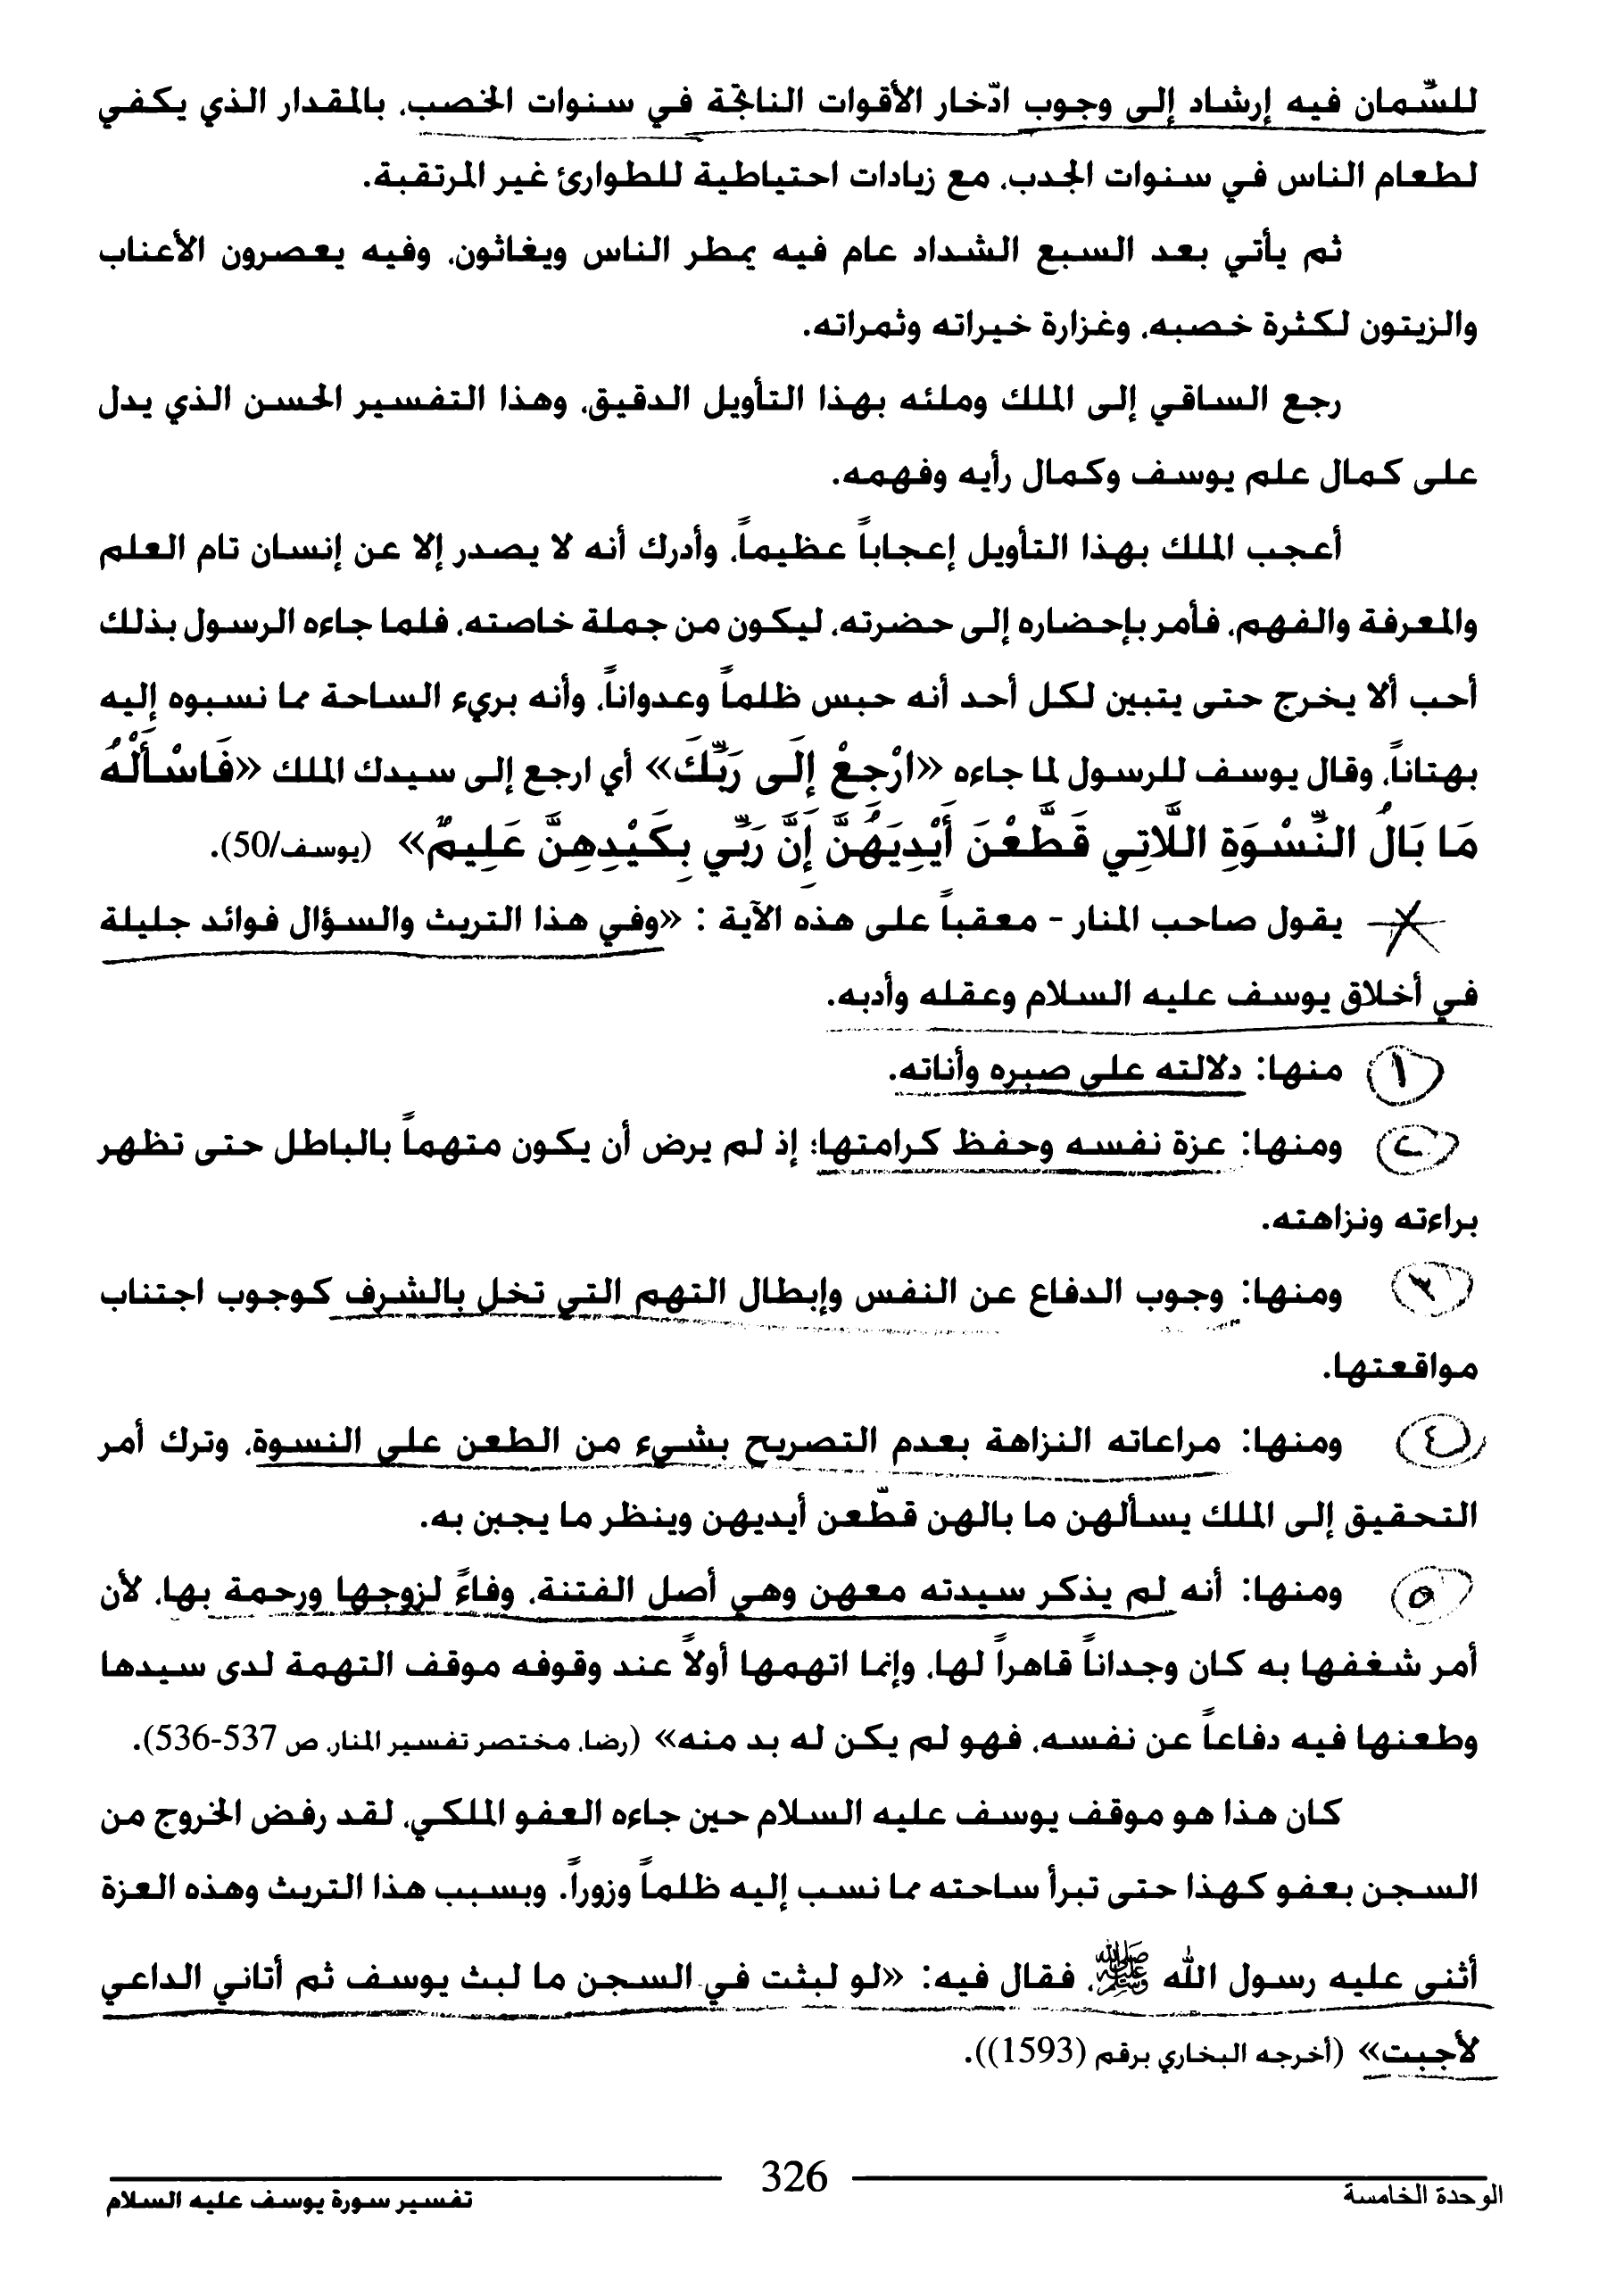 للسِّمان فيه إرشاد إلى وجوب ادّخار الأقوات الناتجة في سنوات الخصب، بالمقدار الذي يكفي
لطعام الناس في سنوات الجدب، مع زيادات احتياطية للطوارئ غير المرتقبة.
ثم يأتي بعد السبع الشداد عام فيه يمطر الناس ويغاثون، وفيه يعصرون الأعناب
والزيتون لكثرة خصبه، وغزارة خيراته وثمراته.
رجع الساقي إلى الملك وملئه بهذا التأويل الدقيق، وهذا التفسير الحسن الذي يدل
على كمال علم يوسف وكمال رأيه وفهمه.
أعجب الملك بهذا التأويل إعجاباً عظيماً، وأدرك أنه لا يصدر إلا عن إنسان تام العلم
والمعرفة والفهم، فأمر بإحضاره إلى حضرته، ليكون من جملة خاصته، فلما جاءه الرسول بذلك
أحب ألا يخرج حتى يتبين لكل أحد أنه حبس ظلماً وعدواناً، وأنه بريء الساحة مما نسبوه إليه
بهتاناً، وقال يوسف للرسول لما جاءه «ارْجِعْ إِلَى رَبِّكَ» أي ارجع إلى سيدك الملك «فَاسْأَلْهُ
مَا بَالُ النِّسْوَةِ اللَّاتِي قَطَّعْنَ أَيْدِيَهُنَّ إِنَّ رَبِّي بِكَيْدِهِنَّ عَلِيمٌ» (يوسف/50).
يقول صاحب المنار - معقباً على هذه الآية : «وفي هذا التريث والسؤال فوائد جليلة
في أخلاق يوسف عليه السلام وعقله وأدبه.
١ منها: دلالته على صبره وأناته.
٢ ومنها: عزة نفسه وحفظ كرامتها؛ إذ لم يرض أن يكون متهماً بالباطل حتى تظهر
براءته ونزاهته.
٣ ومنها: وجوب الدفاع عن النفس وإبطال التهم التي تخل بالشرف كوجوب اجتناب
مواقعتها.
٤ ومنها: مراعاته النزاهة بعدم التصريح بشيء من الطعن على النسوة، وترك أمر
التحقيق إلى الملك يسألهن ما بالهن قطّعن أيديهن وينظر ما يجبن به.
٥ ومنها: أنه لم يذكر سيدته معهن وهي أصل الفتنة، وفاءً لزوجها ورحمة بها، لأن
أمر شغفها به كان وجداناً قاهراً لها، وإنما اتهمها أولاً عند وقوفه موقف التهمة لدى سيدها
وطعنها فيه دفاعاً عن نفسه، فهو لم يكن له بد منه» (رضا، مختصر تفسير المنار، ص 537-536).
كان هذا هو موقف يوسف عليه السلام حين جاءه العفو الملكي، لقد رفض الخروج من
السجن بعفو كهذا حتى تبرأ ساحته مما نسب إليه ظلماً وزوراً. وبسبب هذا التريث وهذه العزة
أثنى عليه رسول الله ﷺ، فقال فيه: «لو لبثت في السجن ما لبث يوسف ثم أتاني الداعي
لأجبت» (أخرجه البخاري برقم (1593)).
الوحدة الخامسة 326 تفسير سورة يوسف عليه السلام